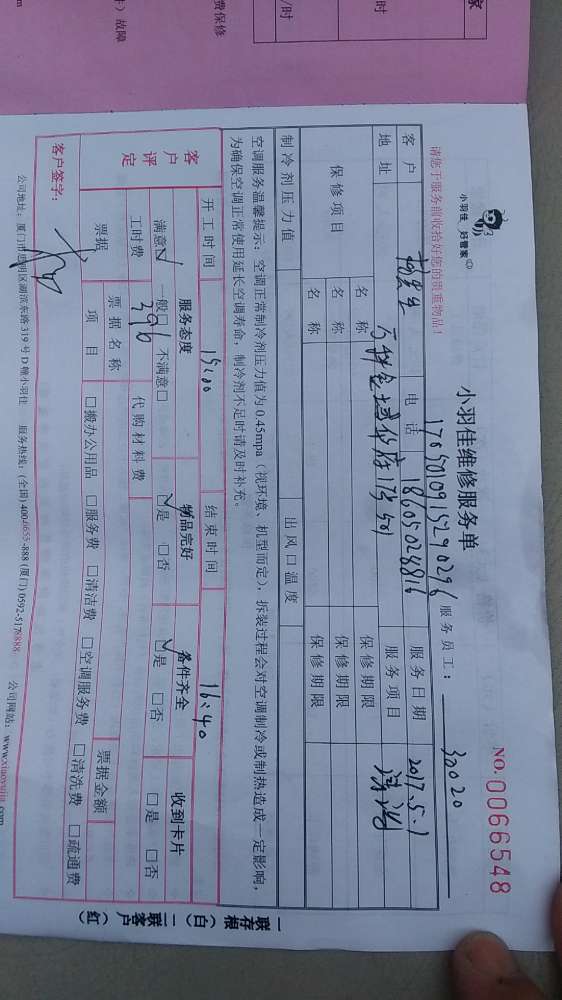 小羽佳 好管家
小羽佳维修服务单
NO.0066548
请您于服务前收拾好您的贵重物品!
1705010915290296 服务员工: 32020
客户 电话 18605028816 服务日期 2017.5.1
地址 服务项目 清洗
保修项目 名称 保修期限
名称 保修期限
名称 保修期限
制冷剂压力值 出风口温度
空调服务温馨提示:空调正常制冷剂压力值为0.45mpa(视环境、机型而定),拆装过程会对空调制冷或制热造成一定影响,
为确保空调正常使用延长空调寿命,制冷剂不足时请及时补充。
开工时间 15:00 结束时间 16:40
客户评定 服务态度 物品完好 备件齐全 收到卡片
满意☑ 一般□ 不满意□ ☑是 □否 ☑是 □否 □是 □否
工时费 396 代购材料费
票据 票据名称 票据金额
项目 □搬办公用品 □服务费 □清洁费 □空调服务费 □清洗费 □疏通费
客户签字:
公司地址:厦门市思明区湖滨东路319号D幢小羽佳 服务热线:(全国)4004655-888 (厦门)0592-5178888 公司网站:www.xiaoyujia.com
一联存根(白) 二联客户(红)
费保修
)故障
/时
时
家
om